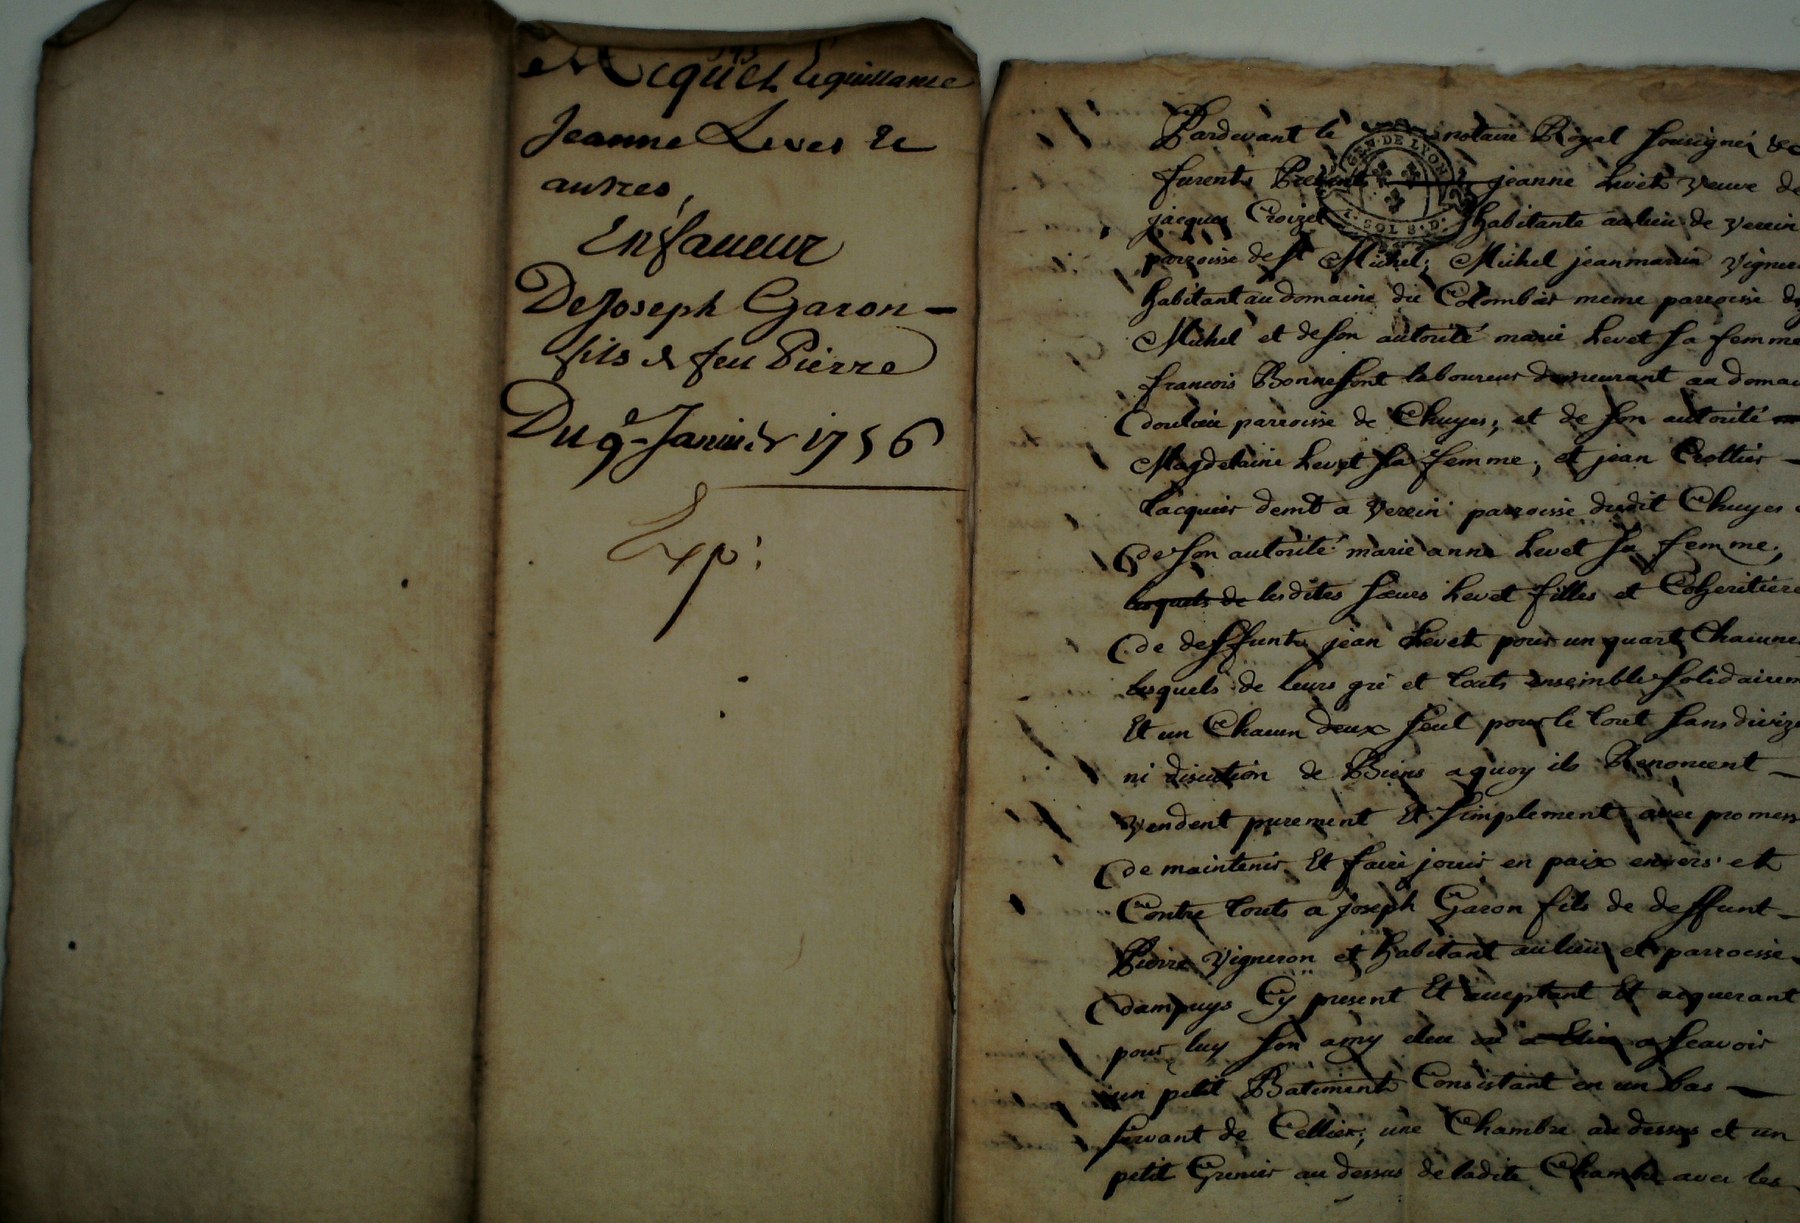 quittance
Jeanne Levet &
autres,
En faueur
De Joseph Garon –
fils de feu Pierre
Du 9e Janvier 1756
Exp:
Pardevant le notaire Royal Sousigné &c
furent Présents jeanne Levet veuve de
jacques Croizet habitante au lieu de Verin
parroisse de St Michel; Michel jeanmarin vigneron
habitant au domaine du Colombier meme parroisse de
Michel et de son autorité marie Levet sa femme
francois Bonnefont laboureur demeurant au domaine
parroisse de Chuyes, et de son autorité
Magdelaine Levet sa femme, et jean Crottier –
demt a Verin parroisse dudit Chuyes
de son autorité marie anne Levet sa femme;
lesquels de lesdites sœurs Levet filles et Coheritieres
de deffunt jean Levet pour un quart Chacune
lesquels de leurs gré et touts ensemble solidairem
Et un Chacun deux seul pour le tout sans divizion
ni discution de Biens a quoy ils Renoncent –
vendent purement Et simplement avec promess
de maintenir Et faire jouir en paix envers et
Contre touts a joseph Garon fils de deffunt –
Pierre vigneron et habitant au lieu et parroisse –
dampuys Cy present Et acceptant Et acquerant
pour luy son amy eleu ou a Elire a scavoir
un petit Batiment Consistant en un bas –
servant de Cellier; une Chambre au dessus et un
petit Grenier au dessus de ladite Chambre avec les
GEN. DE LYON
SOLS. D.